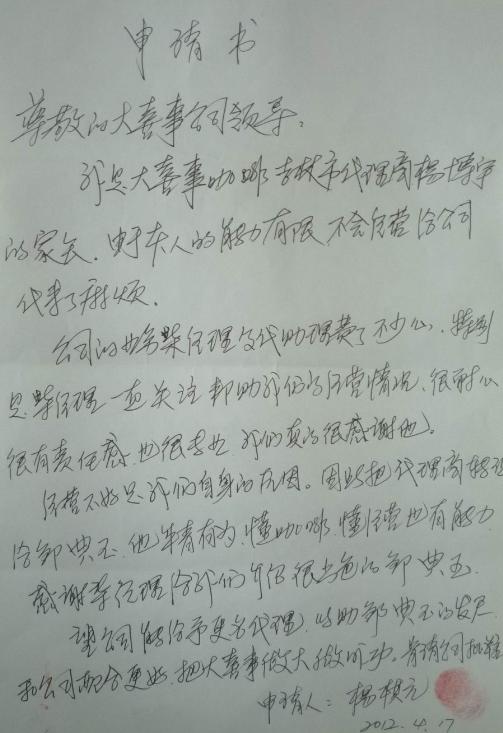 申请书
尊敬的大喜事公司领导:
我是大喜事咖啡吉林市代理商杨博宇
的家长.由于本人的能力有限,不会经营给公司
代来了麻烦.
公司的柴经理及代助理费了不少心.特别
是柴经理一直关注帮助我们的经营情况.很耐心
很有责任感.也很专业.我们真的很感谢他。
经营不好是我们自身的原因。因此把代理商转让
给郭典玉.他年青有为,懂咖啡,懂经营也有能力
感谢李经理给我们介绍很出色的郭典玉.
望公司能给予更名代理.以助郭典玉的发展.
和公司配合更好.把大喜事做大做成功。肯请公司批准
申请人:杨棋元
2012.4.17